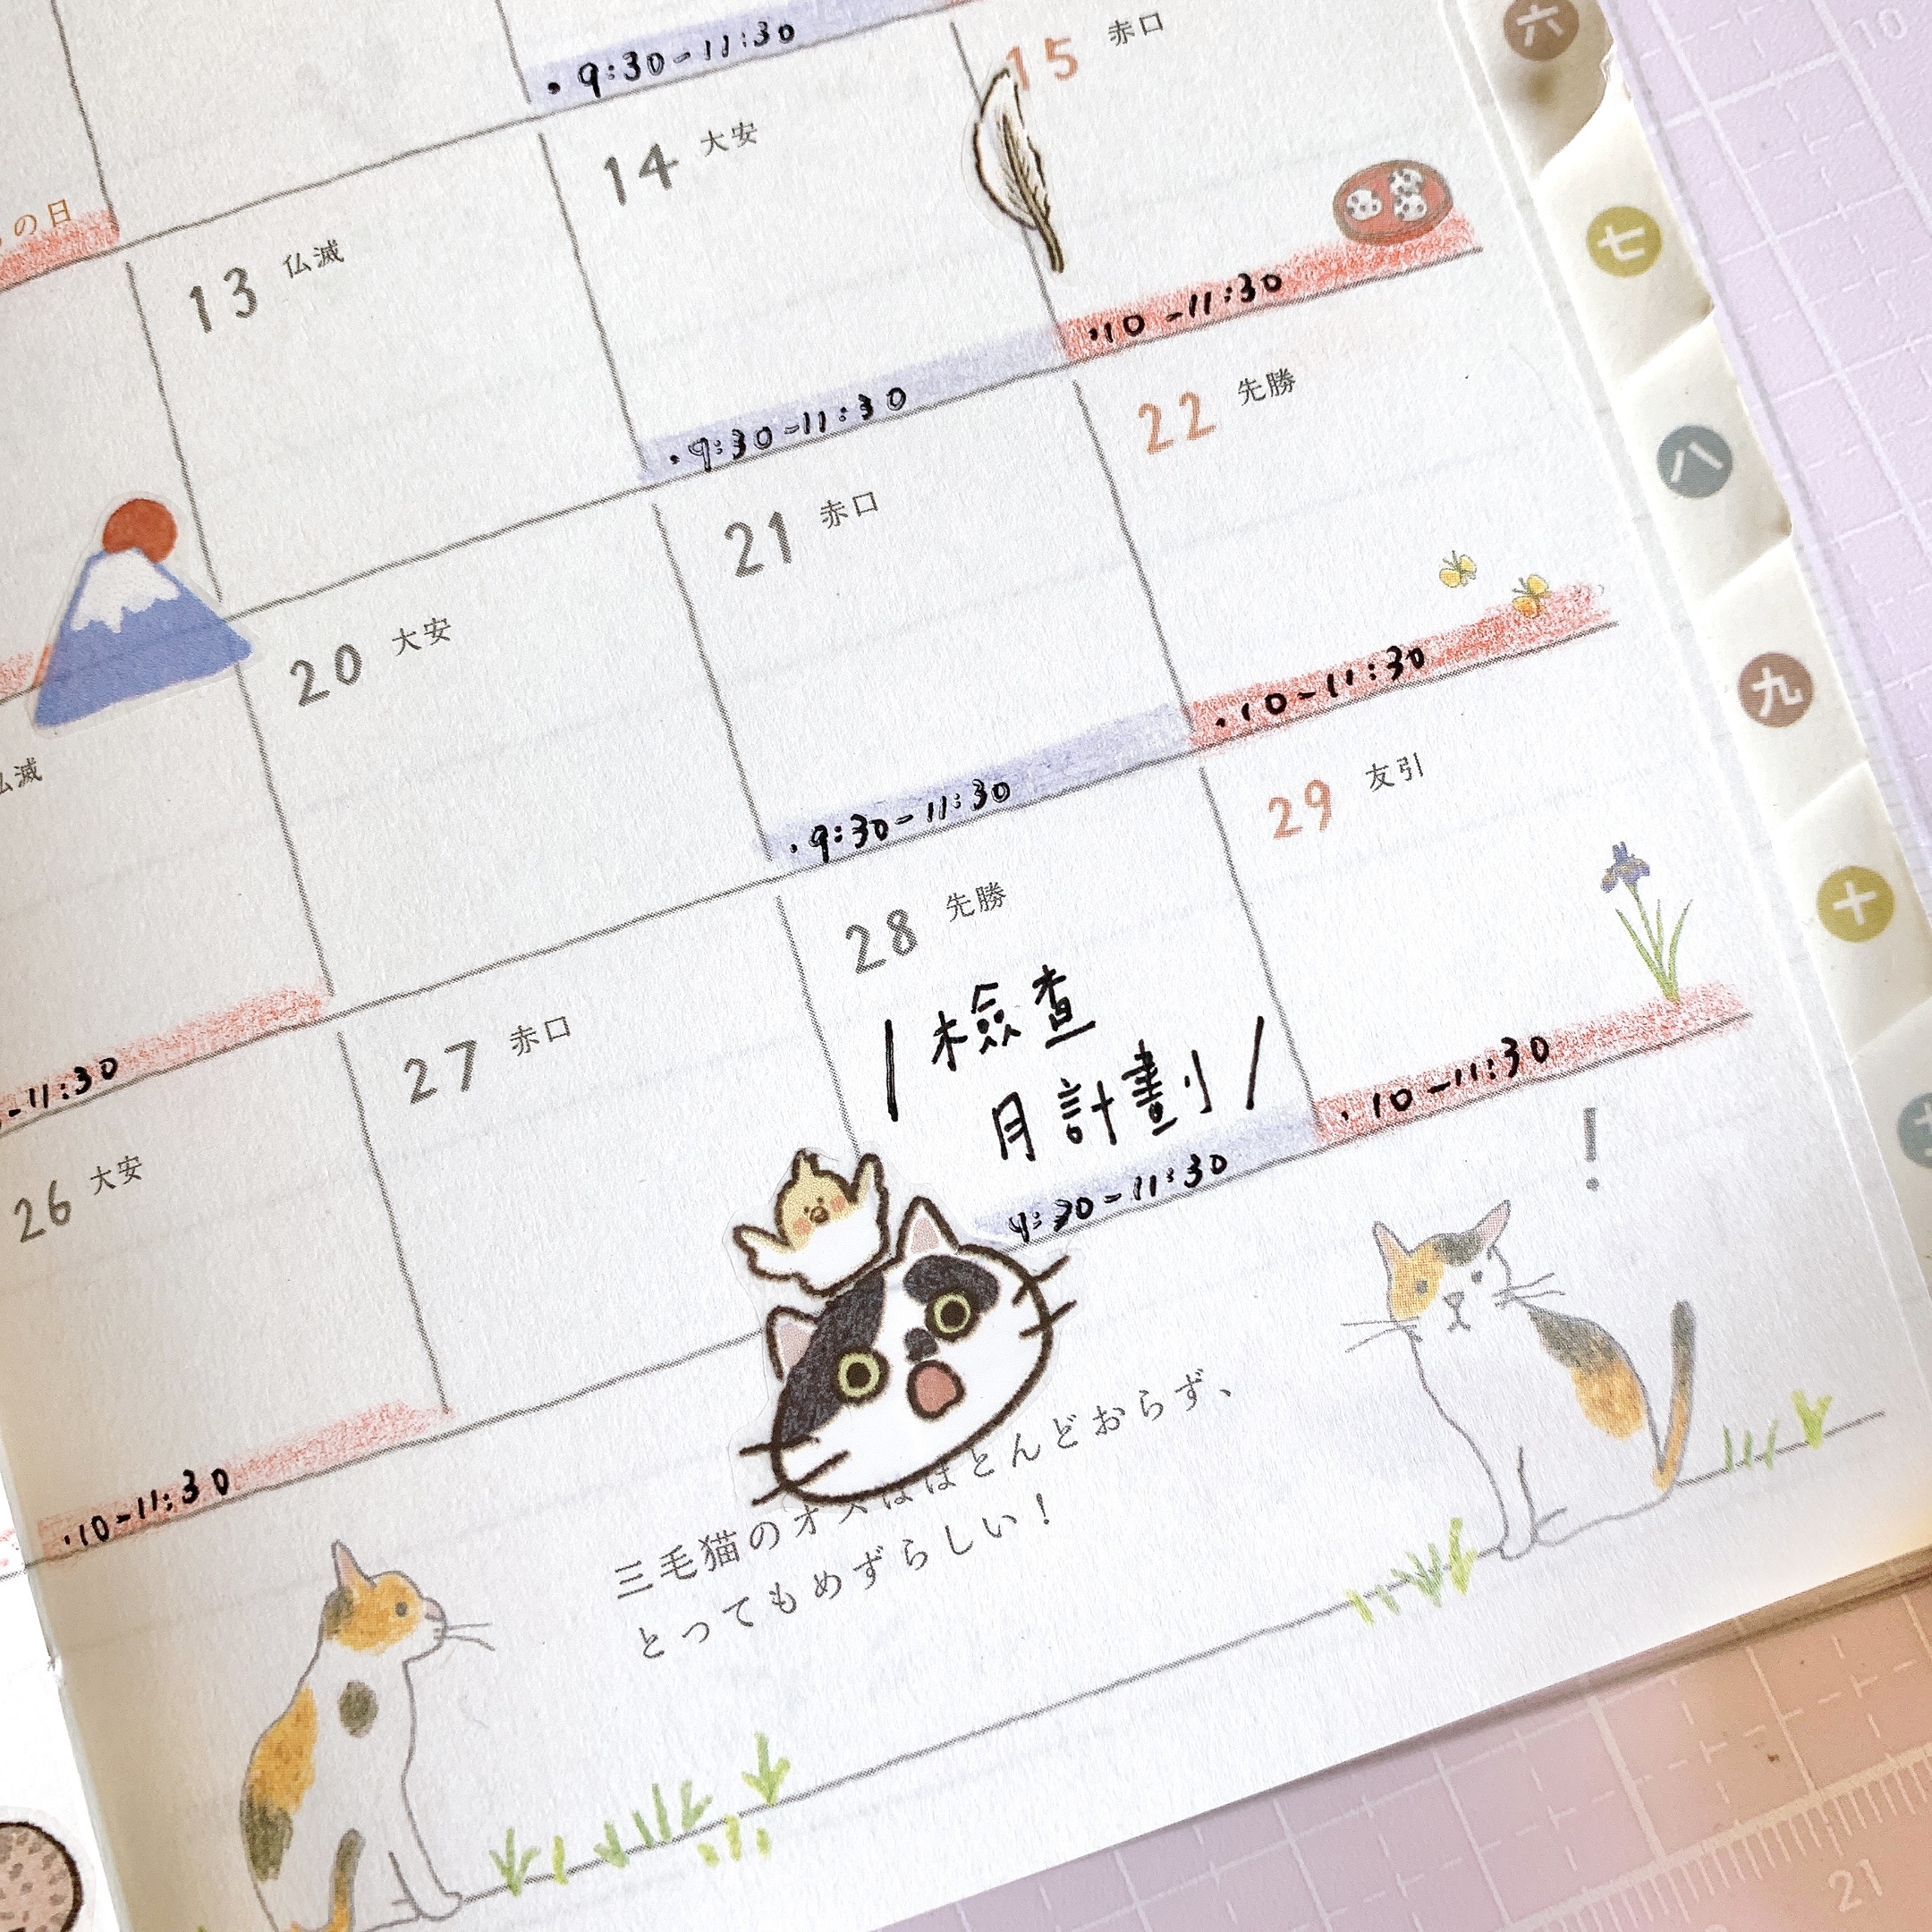 9:30-11:30
15 赤口
の日
13 仏滅
14 大安
9:30-11:30
10-11:30
仏滅
20 大安
21 赤口
9:30-11:30
22 先勝
10-11:30
-11:30
26 大安
10-11:30
27 赤口
28 先勝
檢查
月計劃
9:30-11:30
29 友引
10-11:30
!
三毛猫のオスはほとんどおらず、
とってもめずらしい!
六
七
八
九
十
10
21